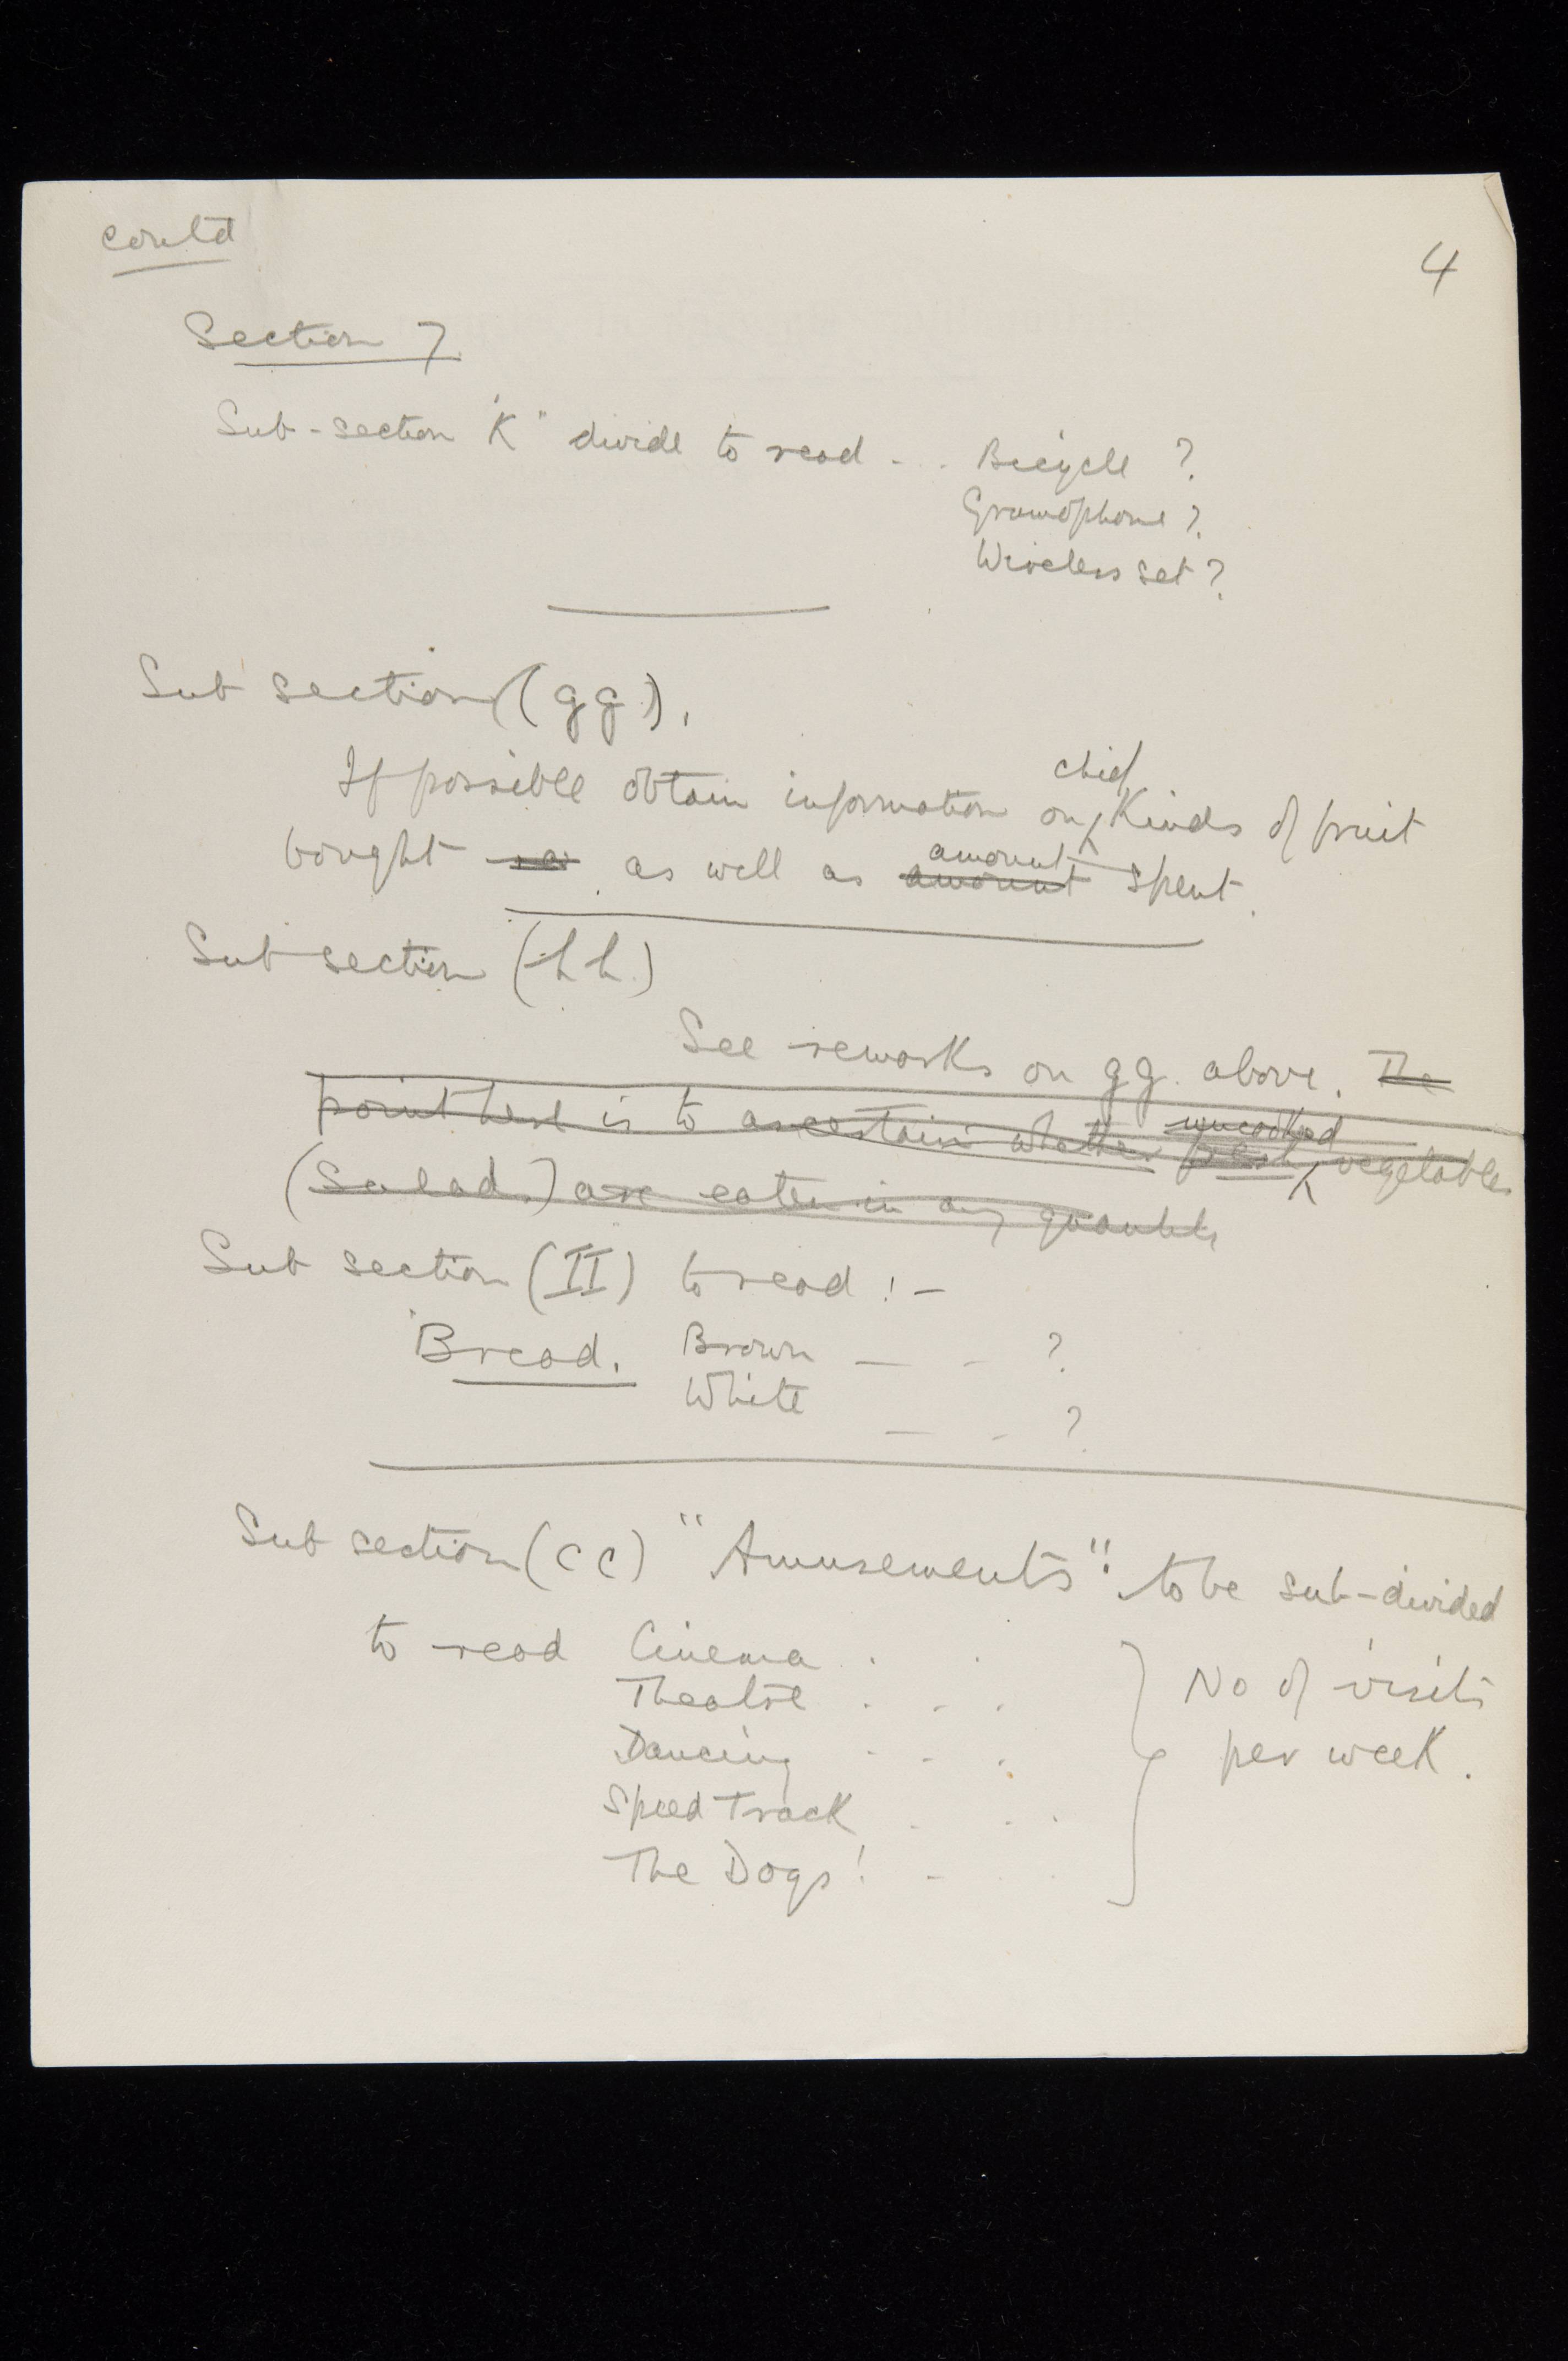 contd
4
Section 7
Sub-section "K" divide to read - . . Bicycle ?
Gramophone ?
Wireless set ?
Sub section (gg).
If possible obtain information on chief kinds of fruit
bought as well as amount amount spent.
Sub section (hh)
See remarks on gg. above. The
point here is to ascertain whether fresh uncooked vegetables
(Salad.) are eaten in any quantity
Sub section (II) to read :-
Bread. Brown — - ?
White — - ?
Sub section (cc) "Amusements": to be sub-divided
to read Cinema . .
Theatre . . .
Dancing . . .
Speed Track . . .
The Dogs! - . .
No of visits
per week.